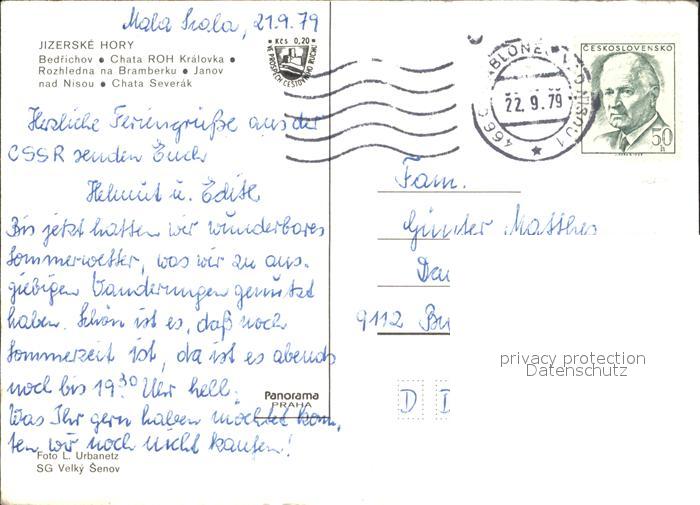 Mala Skala, 21.9.79
JIZERSKÉ HORY
Bedřichov • Chata ROH Královka •
Rozhledna na Bramberku • Janov
nad Nisou • Chata Severák
• Kčs 0,20 •
VE PROSPĚCH CESTOVNÍHO RUCHU
22.9.79
ČESKOSLOVENSKO
50 h
Herzliche Feriengrüße aus der
CSSR senden Euch
Helmut u. Edith
Bis jetzt hatten wir wunderbares
Sommerwetter, was wir zu aus-
giebigen Wanderungen genutzt
haben. Schön ist es, daß noch
Sommerzeit ist, da ist es abends
noch bis 19³⁰ Uhr hell.
Was Ihr gern haben möchtet konn-
ten wir noch nicht kaufen!
Panorama
PRAHA
Foto L. Urbanetz
SG Velký Šenov
Fam.
Günter Matthes
9112 Bu
D D
privacy protection
Datenschutz